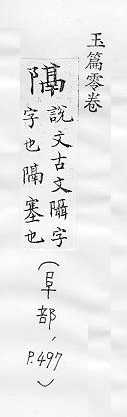 玉篇零卷
隔
說文古文字
字也隔塞也
(阜部, P.497)